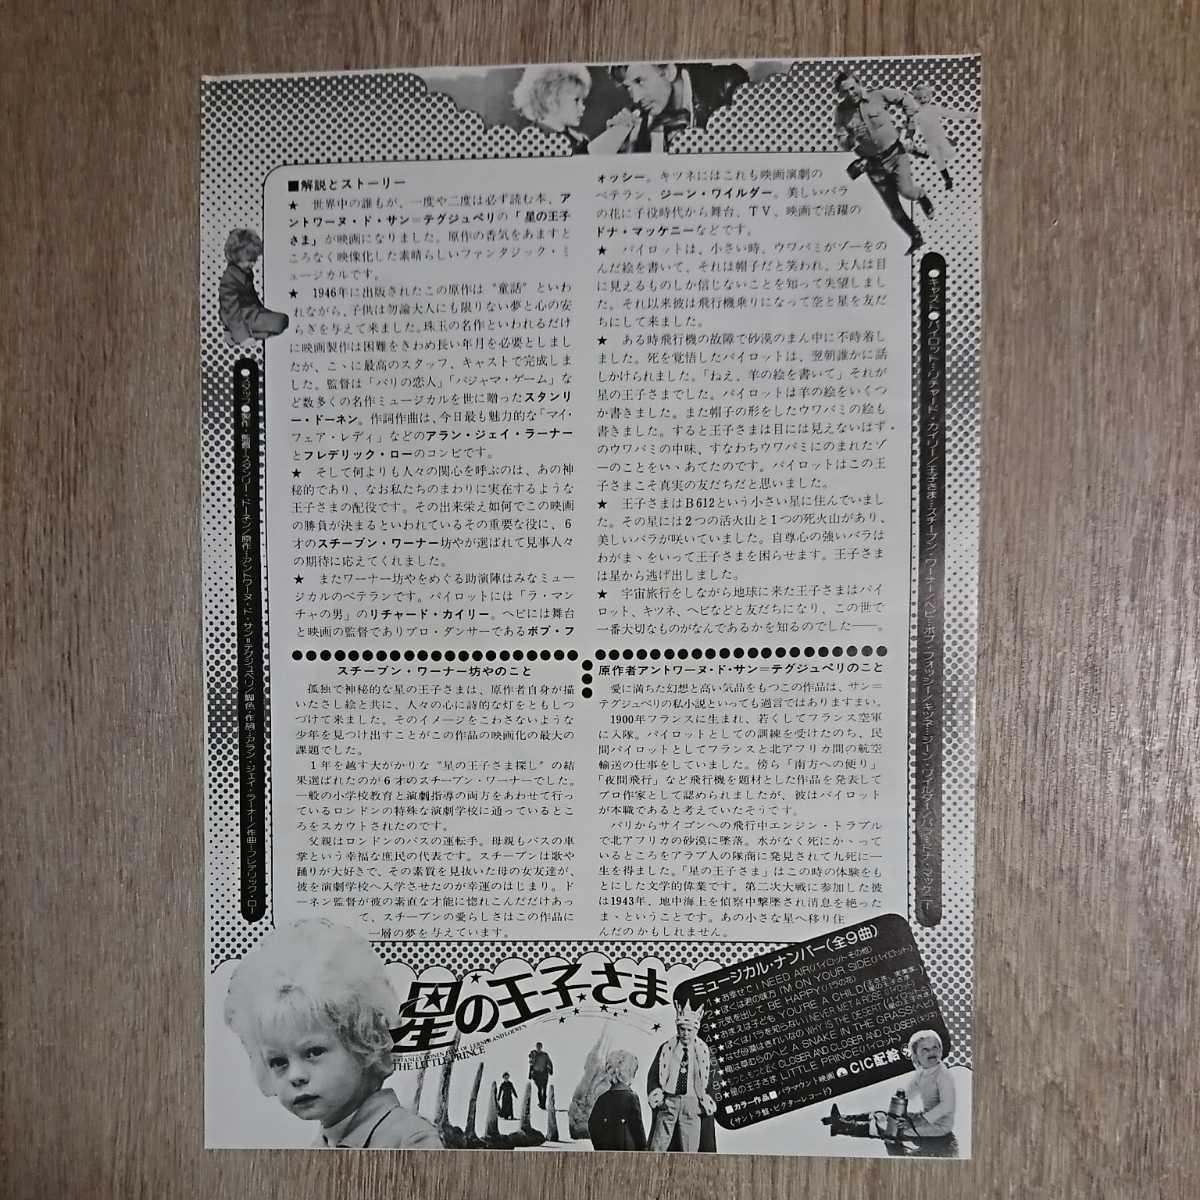 ■解説とストーリー
★　世界中の誰もが、一度や二度は必ず読む本、ア
ントワーヌ・ド・サン＝テグジュペリの「星の王子
さま」が映画になりました。原作の香気をあますと
ころなく映像化した素晴らしいファンタジック・ミ
ュージカルです。
★　1946年に出版されたこの原作は“童話”といわ
れながら、子供は勿論大人にも限りない夢と心の安
らぎを与えて来ました。珠玉の名作といわれるだけ
に映画製作は困難をきわめ長い年月を必要としまし
たが、こゝに最高のスタッフ、キャストで完成しま
した。監督は「パリの恋人」「パジャマ・ゲーム」な
ど数多くの名作ミュージカルを世に贈ったスタンリ
ー・ドーネン。作詞作曲は、今日最も魅力的な「マイ・
フェア・レディ」などのアラン・ジェイ・ラーナー
とフレデリック・ローのコンビです。
★　そして何よりも人々の関心を呼ぶのは、あの神
秘的であり、なお私たちのまわりに実在するような
王子さまの配役です。その出来栄え如何でこの映画
の勝負が決まるといわれているその重要な役に、6
才のスチーブン・ワーナー坊やが選ばれて見事人々
の期待に応えてくれました。
★　またワーナー坊やをめぐる助演陣はみなミュー
ジカルのベテランです。パイロットには「ラ・マン
チャの男」のリチャード・カイリー。ヘビには舞台
と映画の監督でありプロ・ダンサーであるボブ・フ
ォッシー。キツネにはこれも映画演劇の
ベテラン、ジーン・ワイルダー。美しいバラ
の花に子役時代から舞台、TV、映画で活躍の
ドナ・マッケニーなどです。
★　パイロットは、小さい時、ウワバミがゾーをの
んだ絵を書いて、それは帽子だと笑われ、大人は目
に見えるものしか信じないことを知って失望しまし
た。それ以来彼は飛行機乗りになって空と星を友だ
ちにして来ました。
★　ある時飛行機の故障で砂漠のまん中に不時着し
ました。死を覚悟したパイロットは、翌朝誰かに話
しかけられました。「ねえ、羊の絵を書いて」それが
星の王子さまでした。パイロットは羊の絵をいくつ
か書きました。また帽子の形をしたウワバミの絵も
書きました。すると王子さまは目には見えないはず
のウワバミの中味、すなわちウワバミにのまれたゾ
ーのことをいゝあてたのです。パイロットはこの王
子さまこそ真実の友だちだと思いました。
★　王子さまはB612という小さい星に住んでいまし
た。その星には2つの活火山と1つの死火山があり、
美しいバラが咲いていました。自尊心の強いバラは
わがまゝをいって王子さまを困らせます。王子さま
は星から逃げ出しました。
★　宇宙旅行をしながら地球に来た王子さまはパイ
ロット、キツネ、ヘビなどと友だちになり、この世で
一番大切なものがなんであるかを知るのでした――。
スチーブン・ワーナー坊やのこと
孤独で神秘的な星の王子さまは、原作者自身が描
いたさし絵と共に、人々の心に詩的な灯をともしつ
づけて来ました。そのイメージをこわさないような
少年を見つけ出すことがこの作品の映画化の最大の
課題でした。
1年を越す大がかりな“星の王子さま探し”の結
果選ばれたのが6才のスチーブン・ワーナーでした。
一般の小学校教育と演劇指導の両方をあわせて行っ
ているロンドンの特殊な演劇学校に通っているとこ
ろをスカウトされたのです。
父親はロンドンのバスの運転手。母親もバスの車
掌という幸福な庶民の代表です。スチーブンは歌や
踊りが大好きで、その素質を見抜いた母の女友達が、
彼を演劇学校へ入学させたのが幸運のはじまり。ド
ーネン監督が彼の素直な才能に惚れこんだだけあっ
て、スチーブンの愛らしさはこの作品に
一層の夢を与えています。
原作者アントワーヌ・ド・サン＝テグジュペリのこと
愛に満ちた幻想と高い気品をもつこの作品は、サン＝
テグジュペリの私小説といっても過言ではありますまい。
1900年フランスに生まれ、若くしてフランス空軍
に入隊。パイロットとしての訓練を受けたのち、民
間パイロットとしてフランスと北アフリカ間の航空
輸送の仕事をしていました。傍ら「南方への便り」
「夜間飛行」など飛行機を題材とした作品を発表して
プロ作家として認められましたが、彼はパイロット
が本職であると考えていたそうです。
パリからサイゴンへの飛行中エンジン・トラブル
で北アフリカの砂漠に墜落。水がなく死にかゝって
いるところをアラブ人の隊商に発見されて九死に一
生を得ました。「星の王子さま」はこの時の体験をも
とにした文学的偉業です。第二次大戦に参加した彼
は1943年、地中海上を偵察中撃墜され消息を絶った
まゝということです。あの小さな星へ移り住
んだのかもしれません。
●キャスト●パイロット…リチャード・カイリー／王子さま…スチーブン・ワーナー／ヘビ…ボブ・フォッシー／キツネ…ジーン・ワイルダー／バラ…ドナ・マッケニー
●スタッフ●製作・監督…スタンリー・ドーネン／原作…アントワーヌ・ド・サン＝テグジュペリ／脚色・作詞…アラン・ジェイ・ラーナー／作曲…フレデリック・ロー
星の王子さま
STANLEY DONEN FILM OF LERNER AND LOEWE'S
THE LITTLE PRINCE
ミュージカル・ナンバー（全9曲）
1★お幸せで I NEED AIR（パイロットその他）
2★ぼくは君の味方 I'M ON YOUR SIDE（パイロット）
3★元気を出して BE HAPPY（バラの花）
4★おまえは子ども YOU'RE A CHILD
5★ぼくはバラを知らない I NEVER MET A ROSE（パイロット）
6★なぜ砂漠はきれいなの WHY IS THE DESERT
7★俺は草むらのヘビ A SNAKE IN THE GRASS（ヘビ）
8★もっともっと近く CLOSER AND CLOSER AND CLOSER（キツネ）
9★星の王子さま LITTLE PRINCE（パイロット）
■カラー作品■パラマウント映画 CIC配給
（サントラ盤・ビクターレコード）